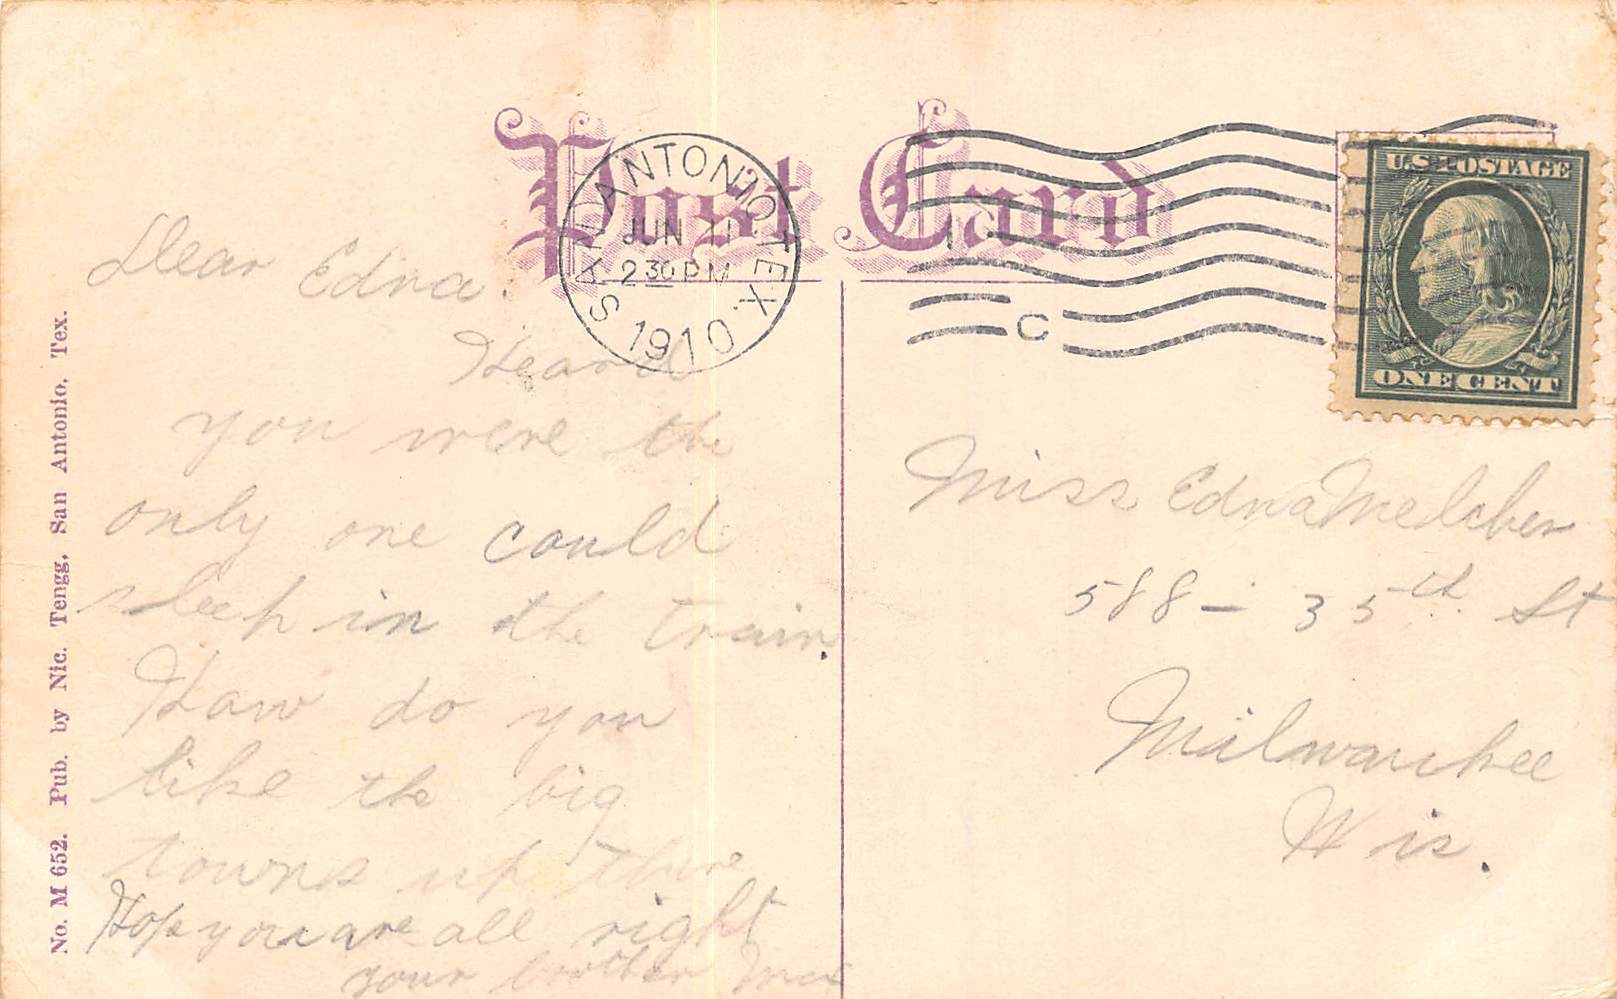 Post Card
SAN ANTONIO, TEX.
JUN 11
2 30 PM
1910
C
U.S. POSTAGE
ONE CENT
Dear Edna.
Heard
you were the
only one could
sleep in the train.
How do you
like the big
towns up there
Hope you are all right
your brother Max
Miss Edna Melcher
588 - 35th St
Milwaukee
Wis.
No. M 652. Pub. by Nic. Tengg, San Antonio, Tex.